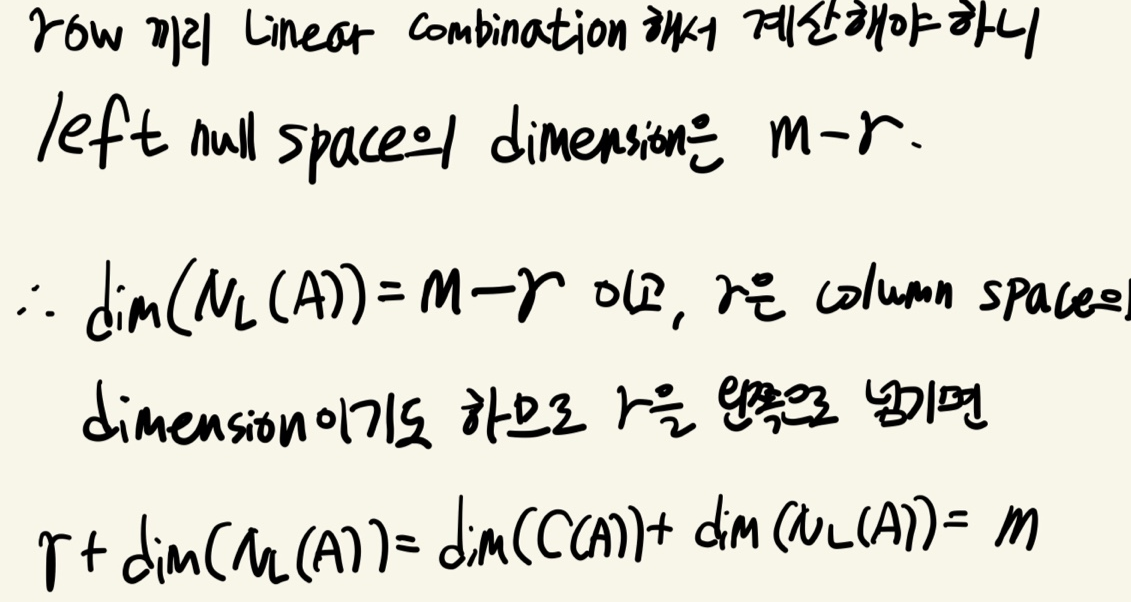 row 끼리 Linear combination 해서 계산해야 하니
left null space의 dimension은 m-r.
∴ dim(N_L(A))=m-r 이고, r은 column space의
dimension이기도 하므로 r을 왼쪽으로 넘기면
r+dim(N_L(A))=dim(C(A))+dim(N_L(A))=m